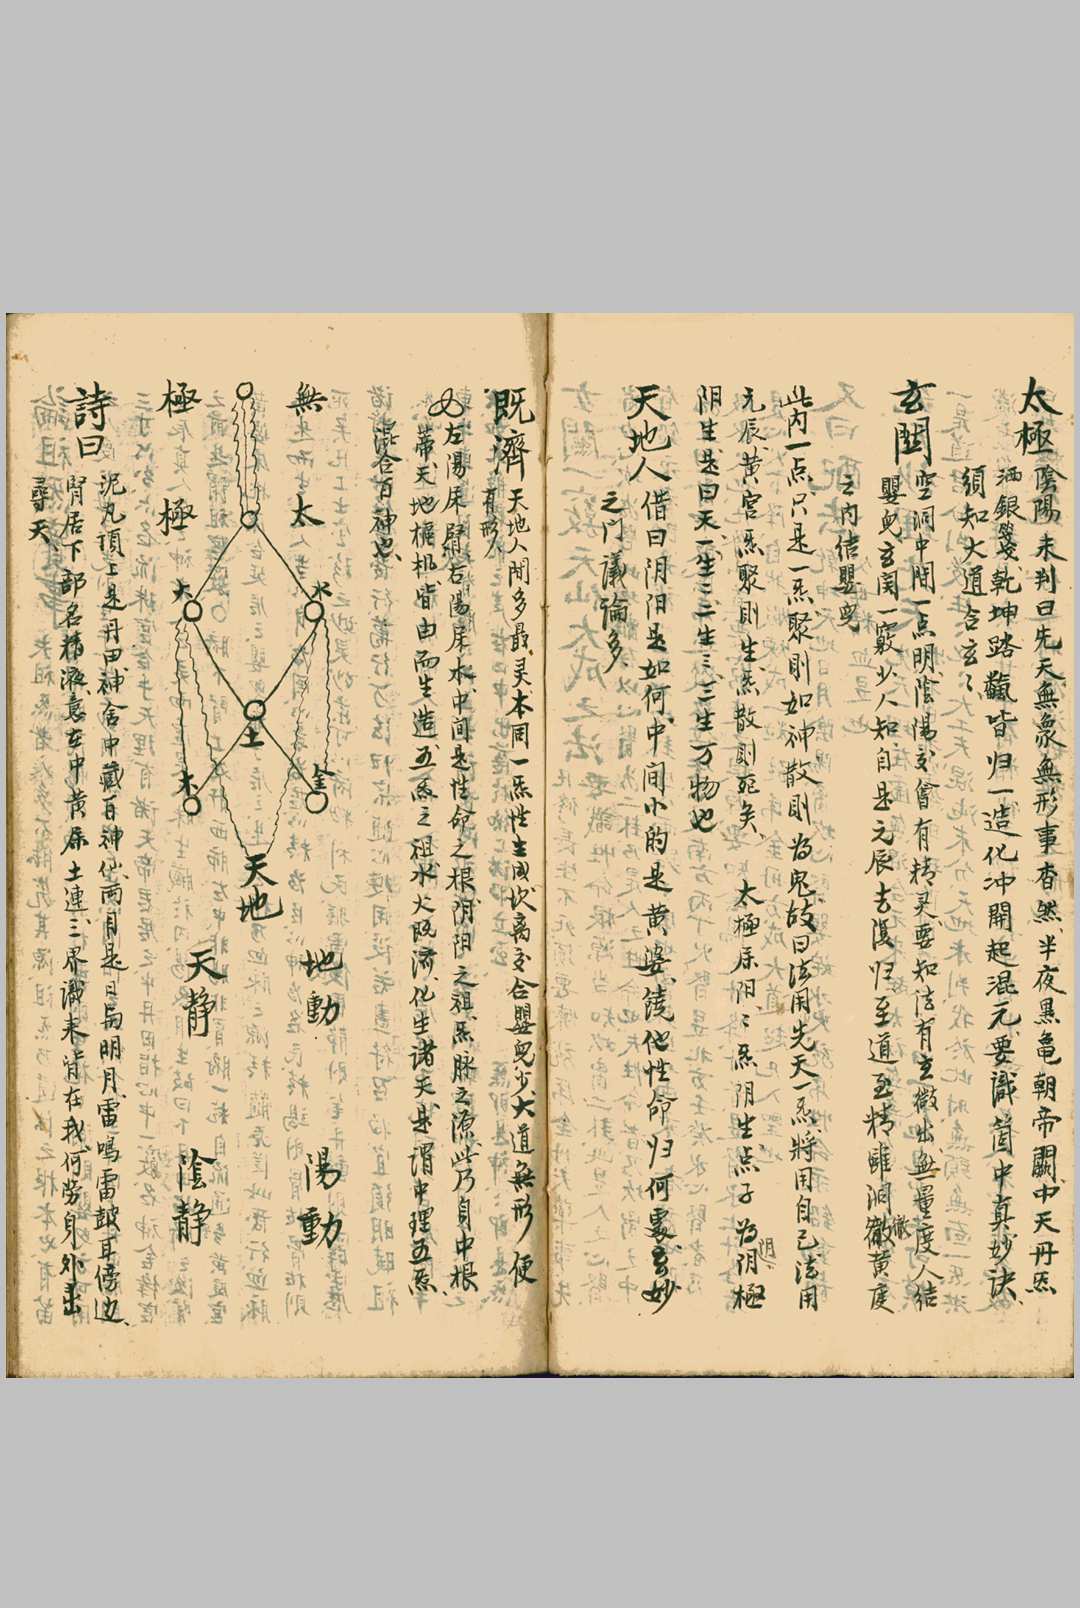 太極 陰陽未判曰先天無象無形事杳然半夜黑龜朝帝闕中天丹炁
洒銀箋乾坤踏飜皆归一造化冲開起混元要識箇中真妙訣
須知大道含玄〻
玄関 空洞中間一点明陰陽交會有精灵要知法有玄微出無量度人結
嬰児玄関一竅少人知自是元辰去復归至道至精雖洞徹黃庭
之内结嬰児
此内一点只是一炁聚則如神散則为鬼故曰法用先天一炁將用自己法用
元辰黃宮炁聚則生炁散則死矣 太極原阳〻炁阴生点子为阴極
阴生是曰天一生二二生三三生万物也
天地人 借曰阴阳是如何中间小的是黃婆饒他性命归何處玄妙
之门議論多
既濟 天地人間多最灵本同一炁性生成坎离交合嬰児少大道無形便
有形
左陽原腎右陽原水中间是性命之根阴阳之祖炁脉之源此乃身中根
蒂天地樞机皆由而生造五炁之祖水火既济化生諸天是谓中理五炁
混合百神也
無 太 地動 陽動
水 金
土
天地
火 木
極 極 天静 陰静
詩曰 泥丸頂上是丹田神舍中藏百神仙両目是日為明月雷鳴雷皷耳傍边
腎居下部名精液意在中黃原土連三界識来皆在我何勞身外去
尋天